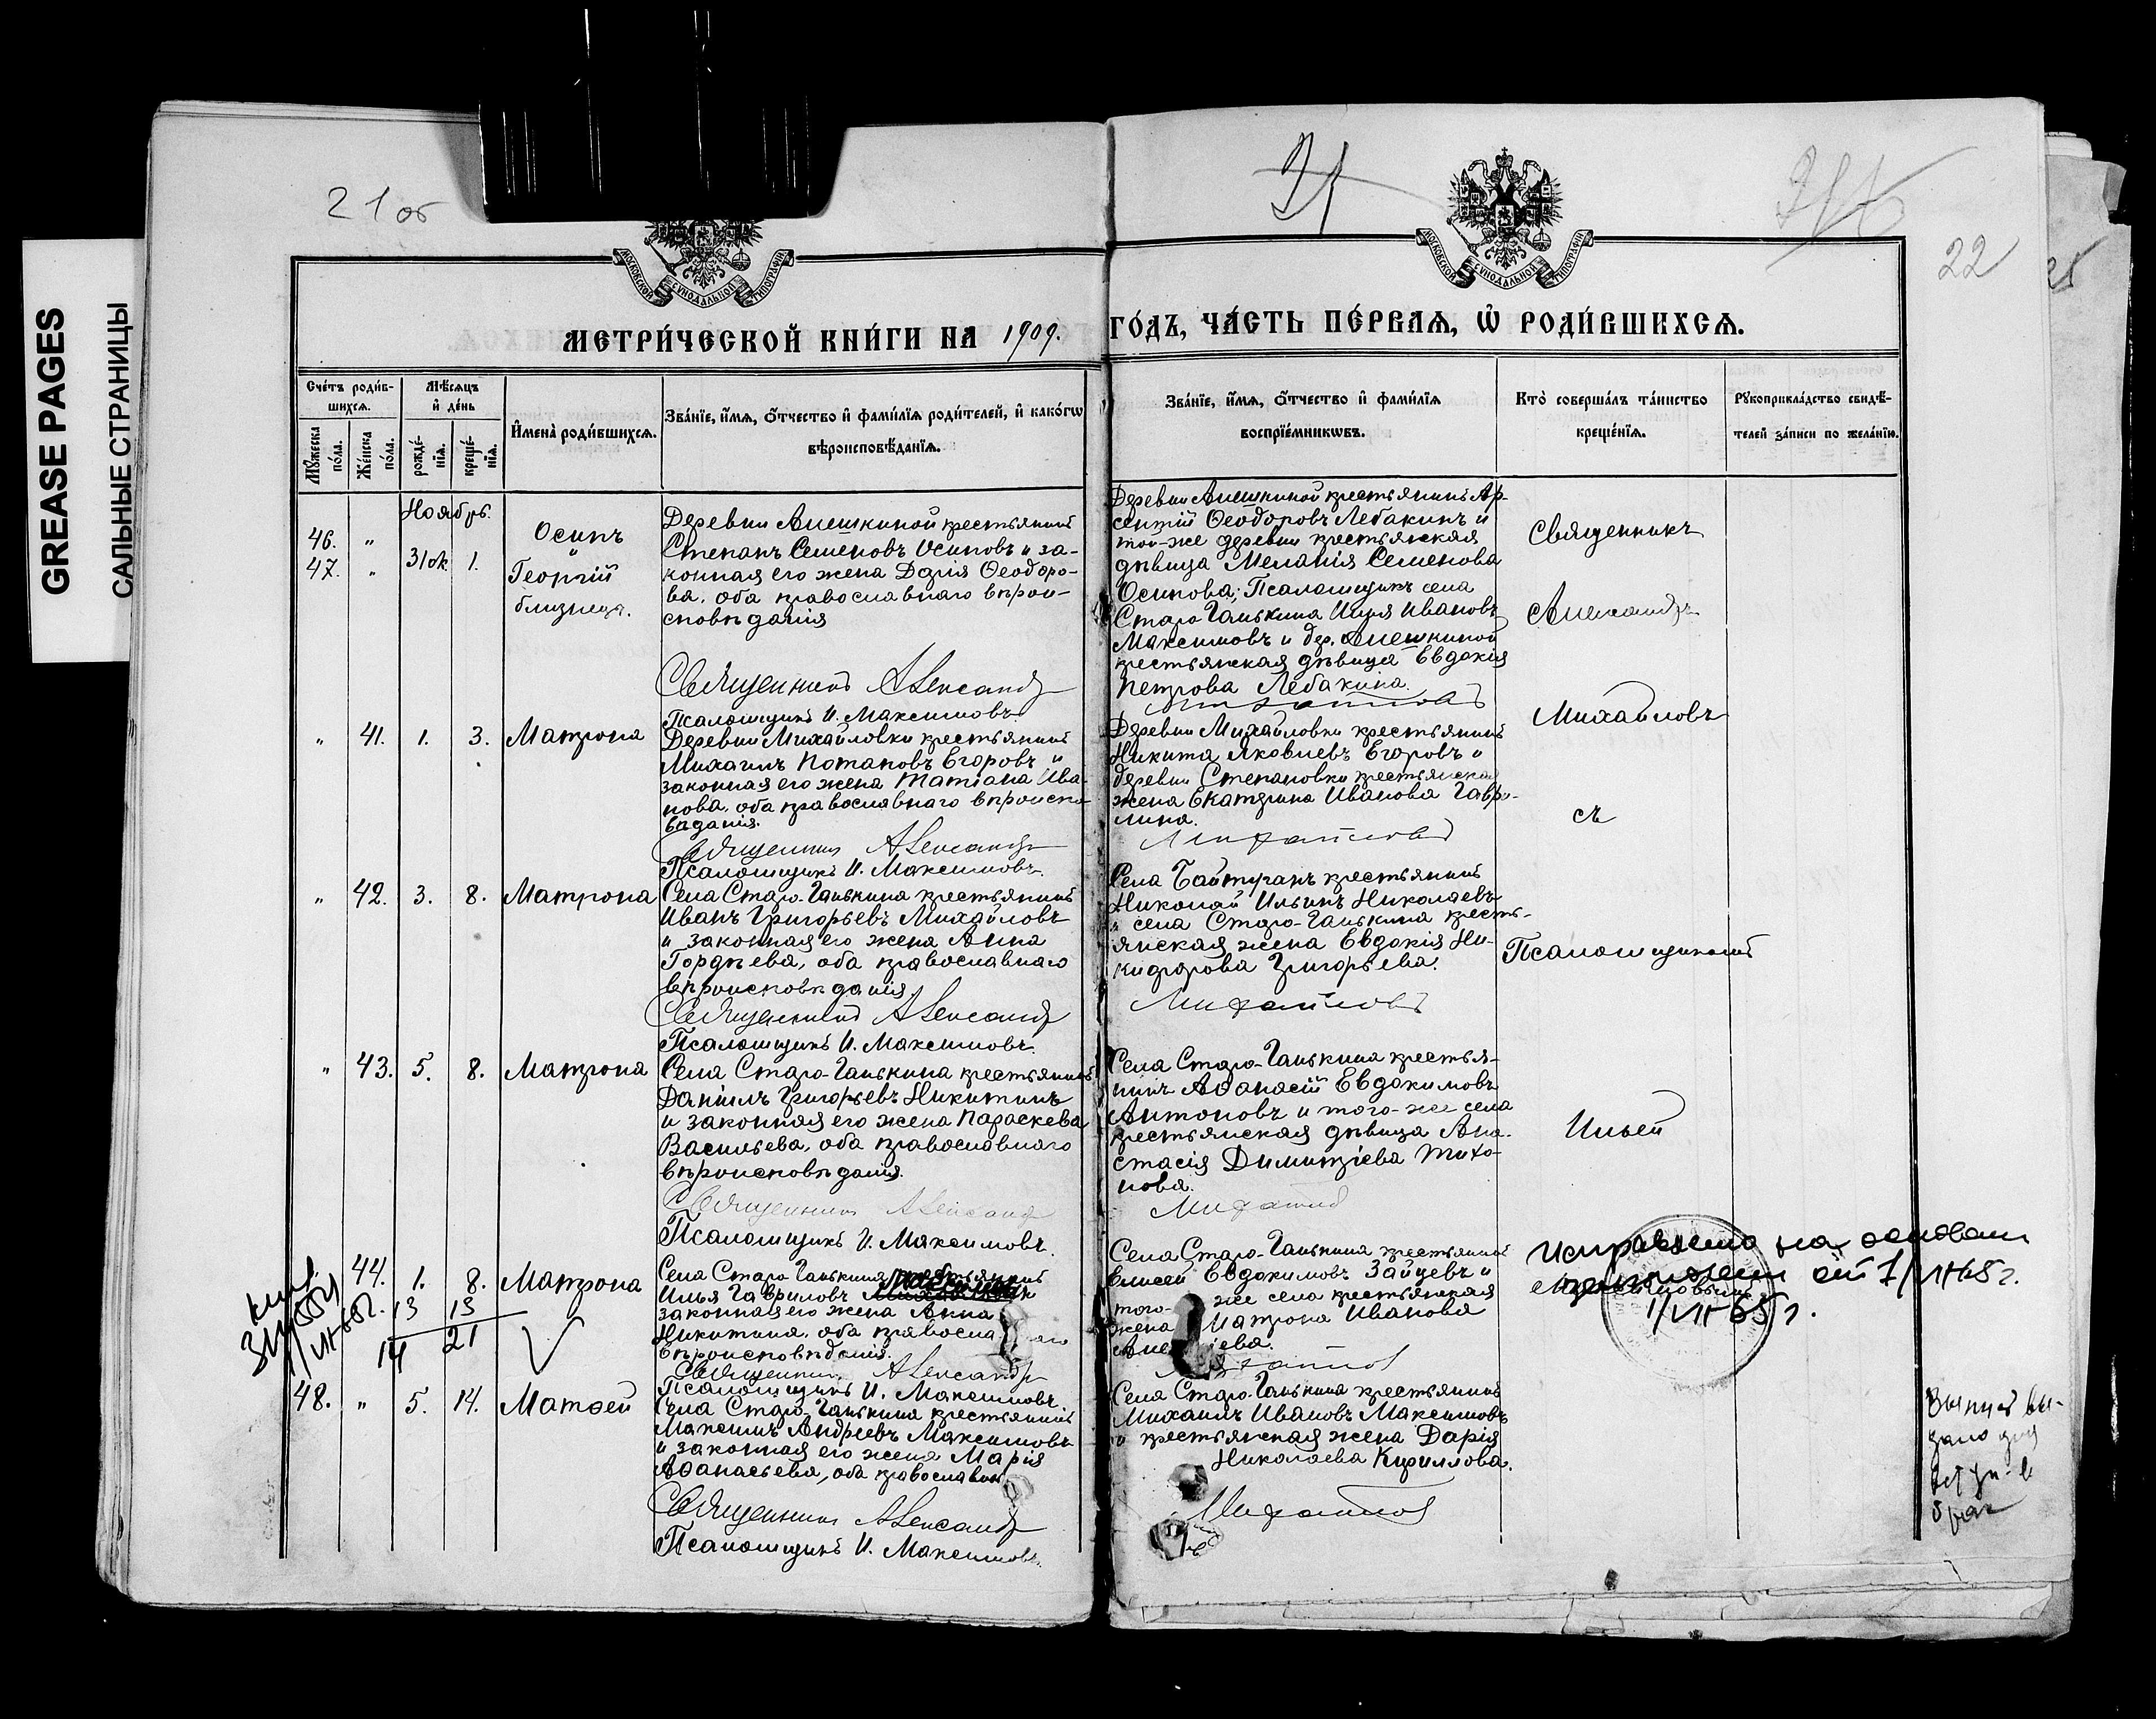 GREASE PAGES
САЛЬНЫЕ СТРАНИЦЫ
21 об
22
МОСКОВСКОЙ СѴНОДАЛЬНОЙ ТИПОГРАФІИ
МОСКОВСКОЙ СѴНОДАЛЬНОЙ ТИПОГРАФІИ
МЕТРИ́ЧЕСКОЙ КНИ́ГИ НА 1909.
ГО́ДЪ, ЧА́СТЬ ПЕ́РВАЯ, Ѡ҆ РОДИ́ВШИХСЯ.
Сче́тъ роди́в-
шихся.
Мѣ́сяцъ
и҆ де́нь
Мꙋ́жеска
по́ла.
Же́нска
по́ла.
рожде́-
нїя.
креще́-
нїя.
И҆мена̀ роди́вшихся.
Зва́нїе, и҆́мя, ѻ҆́тчество и҆ фами́лїя роди́телей, и҆ како́гѡ
вѣроисповѣ́данїя.
Зва́нїе, и҆́мя, ѻ҆́тчество и҆ фами́лїя
воспрїе́мникѡвъ.
Кто̀ соверша́лъ та́инство
креще́нїя.
Рꙋкоприкла́дство свидѣ́-
телей за́писи по жела́нїю.
Ноябрь.
46. "
47. " 31 ок 1.
Осипъ
и
Георгій
близнеца.
Деревни Алешкиной крестьянинъ
Степанъ Семеновъ Осиповъ и за-
конная его жена Дарія Ѳеодоро-
ва, оба православнаго вѣрои-
сповѣданія
Священникъ Александръ
Псаломщикъ И. Максимовъ.
Деревни Алешкиной крестьянинъ Ар-
сентій Ѳеодоровъ Лебакинъ и
той-же деревни крестьянская
дѣвица Меланія Семенова
Осипова; Псаломщикъ села
Старо Ганькина Илья Ивановъ
Максимовъ и дер. Алешкиной
крестьянская дѣвица Евдокія
Петрова Лебакина.
Михайловъ
Священникъ
Александръ
Михайловъ
съ
Псаломщикомъ
Ильей
Максимовымъ
" 41. 1. 3. Матрона
Деревни Михайловки крестьянинъ
Михаилъ Потаповъ Егоровъ и
законная его жена Татіана Ива-
нова, оба православнаго вѣроиспо-
веданія.
Священникъ Александръ
Псаломщикъ И. Максимовъ.
Деревни Михайловки крестьянинъ
Никита Яковлевъ Егоровъ и
деревни Степановки крестьянская
жена Екатерина Иванова Гаври-
лина.
Михайловъ
" 42. 3. 8. Матрона
Села Старо-Ганькина крестьянинъ
Иванъ Григорьевъ Михайловъ
и законная его жена Анна
Гордѣева, оба православнаго
вѣроисповѣданія.
Священникъ Александръ
Псаломщикъ И. Максимовъ.
Села Байтуганъ крестьянинъ
Николай Ильинъ Николаевъ
и села Старо-Ганькина кресть-
янская жена Евдокія Ни-
кифорова Григорьева.
Михайловъ
" 43. 5. 8. Матрона
Села Старо-Ганькина крестьянинъ
Даніилъ Григорьевъ Никитинъ
и законная его жена Параскева
Васильева, оба православнаго
вѣроисповѣданія.
Священникъ Александръ
Псаломщикъ И. Максимовъ.
Села Старо-Ганькина крестья-
нинъ Аѳанасій Евдокимовъ
Антоновъ и того-же села
крестьянская дѣвица Ана-
стасія Димитріева Тихо-
нова.
Михайловъ
44. 1. 8. Матрона
13 13
14 21
Села Старо Ганькина крестьянинъ
Илья Гавриловъ и
законная его жена Анна
Никитина, оба правосла аго
вѣроисповѣданія.
Священникъ Александръ
Псаломщикъ И. Максимовъ.
Села Старо-Ганькина крестьянинъ
Елисей Евдокимовъ Зайцевъ и
того- же села крестьянская
жена Матрона Иванова
Але ѣева.
Исправлено на основан
от 1/VII-65 г.
1/VII-65 г.
48. " 5. 14. Матѳей
Села Старо-Ганькина крестьянинъ
Максимъ Андреевъ Максимовъ
и законная его жена Марія
Аѳанасьева, оба православн.
Священникъ Александръ
Псаломщикъ И. Максимовъ.
Села Старо-Ганькина крестьянинъ
Михаилъ Ивановъ Максимовъ
и крестьянская жена Дарія
Николаева Кириллова.
Михайловъ